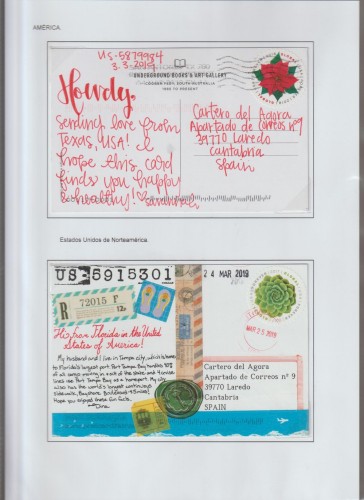 AMÉRICA.
US-5879984
3.3.2019
UNDERGROUND BOOKS & ART GALLERY
COOBER PEDY, SOUTH AUSTRALIA
1985 TO PRESENT
Howdy,
Sending love from
Texas, USA! I
hope this card
finds you happy
& healthy!
Cartero del Agora
Apartado de Correos nº9
39770 Laredo
Cantabria
Spain
Estados Unidos de Norteamérica.
US-5915301
24 MAR 2019
R 72015 F
MAR 25 2019
Hi from Florida in the United
States of America!
My husband and I live in Tampa city, which is home
to Florida's largest port. Port Tampa Bay handles
of all cargo in and out of the state and 4 cruise
lines use Port Tampa Bay as a homeport. My city
also has the world's longest continuous
sidewalk, Bayshore Boulevard
Hope you enjoyed these fun facts.
Cartero del Agora
Apartado de Correos nº 9
39770 Laredo
Cantabria
SPAIN